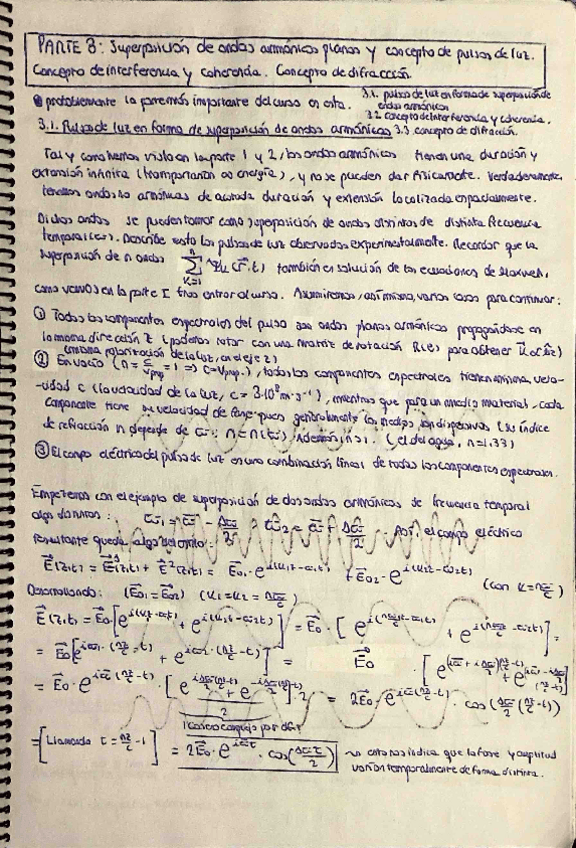 PARTE 3: Superposición de ondas armónicas planas y concepto de pulsos de luz.
Concepto de interferencia y coherencia. Concepto de difracción.
probablemente la parte más importante del curso en esta.
3.1. pulsos de luz en forma de superposición de
ondas armónicas
3.2 concepto de interferencia y coherencia.
3.1. Pulsos de luz en forma de superposición de ondas armónicas 3.3 concepto de difracción.
Tal y como hemos visto en la parte 1 y 2, las ondas armónicas tienen una duración y
extensión infinita (transportarían ∞ energía), y no se pueden dar físicamente. Verdaderamente,
tenemos ondas armónicas de acotada duración y extensión localizada espacialmente.
Dichas ondas se pueden tomar como superposición de ondas distintas de distinta frecuencia
temporal (ω). Describe justo los pulsos de luz observados experimentalmente. Recordar que la
superposición de n ondas (r,t) también es solución de las ecuaciones de Maxwell,
como vemos en la parte I tras entrar al curso. Asumiremos, así mismo, varias cosas para continuar:
① Todas las componentes espectrales del pulso son ondas planas armónicas propagándose en
la misma dirección z (podemos rotar con una matriz de rotación R(θ) para obtener
(misma polarización de la luz, en el eje z)
② En vacío (n = c/vprop = 1 => c = vprop.), todas las componentes espectrales tienen misma velo-
-cidad c (la velocidad de la luz, c = 3·10⁸ m·s⁻¹), mientras que para un medio material, cada
componente tiene su velocidad de fase pues generalmente los medios son dispersivos (su índice
de refracción n depende de ω: n = n(ω). Además, n>1. (el del agua, n=1.33)
③ El campo eléctrico del pulso de luz es una combinación lineal de todas las componentes espectrales.
Empezemos con el ejemplo de superposición de dos ondas armónicas de frecuencia temporal
ω₁ = ω̄ - Δω/2 ; ω₂ = ω̄ + Δω/2. Así, el campo eléctrico
resultante queda algo del estilo:
E(z,t) = E¹(z,t) + E²(z,t) = E₀₁·e^i(k₁z-ω₁t) + E₀₂·e^i(k₂z-ω₂t) (con k = nω/c)
Desarrollando: (E₀₁ = E₀₂)
E(z,t) = E₀[e^i(k₁z-ω₁t) + e^i(k₂z-ω₂t)] = E₀·[
= E₀[e^iω₁·(nz/c-t) + e^iω₂·(nz/c-t)] = E₀
= E₀·e^iω̄(nz/c-t)· = 2E₀·e^iω̄(nz/c-t)·cos(Δω/2(nz/c-t))
=[Llamando τ = nz/c - t] = 2E₀·e^iω̄τ·cos(Δωτ/2) → esto nos indica que la fase y amplitud
varían temporalmente de forma distinta.